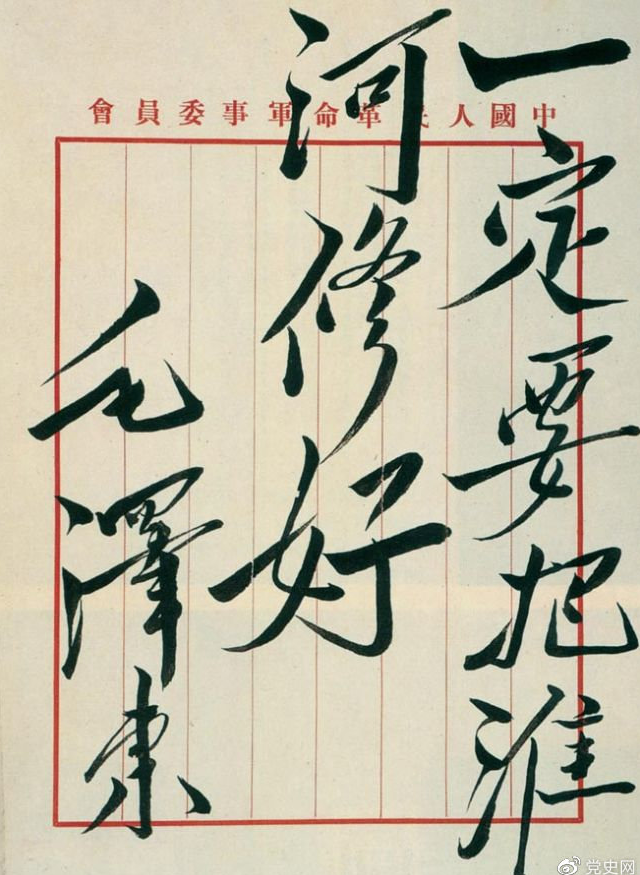 中國人民革命軍事委員會
一定要把淮
河修好
毛澤東
党史网